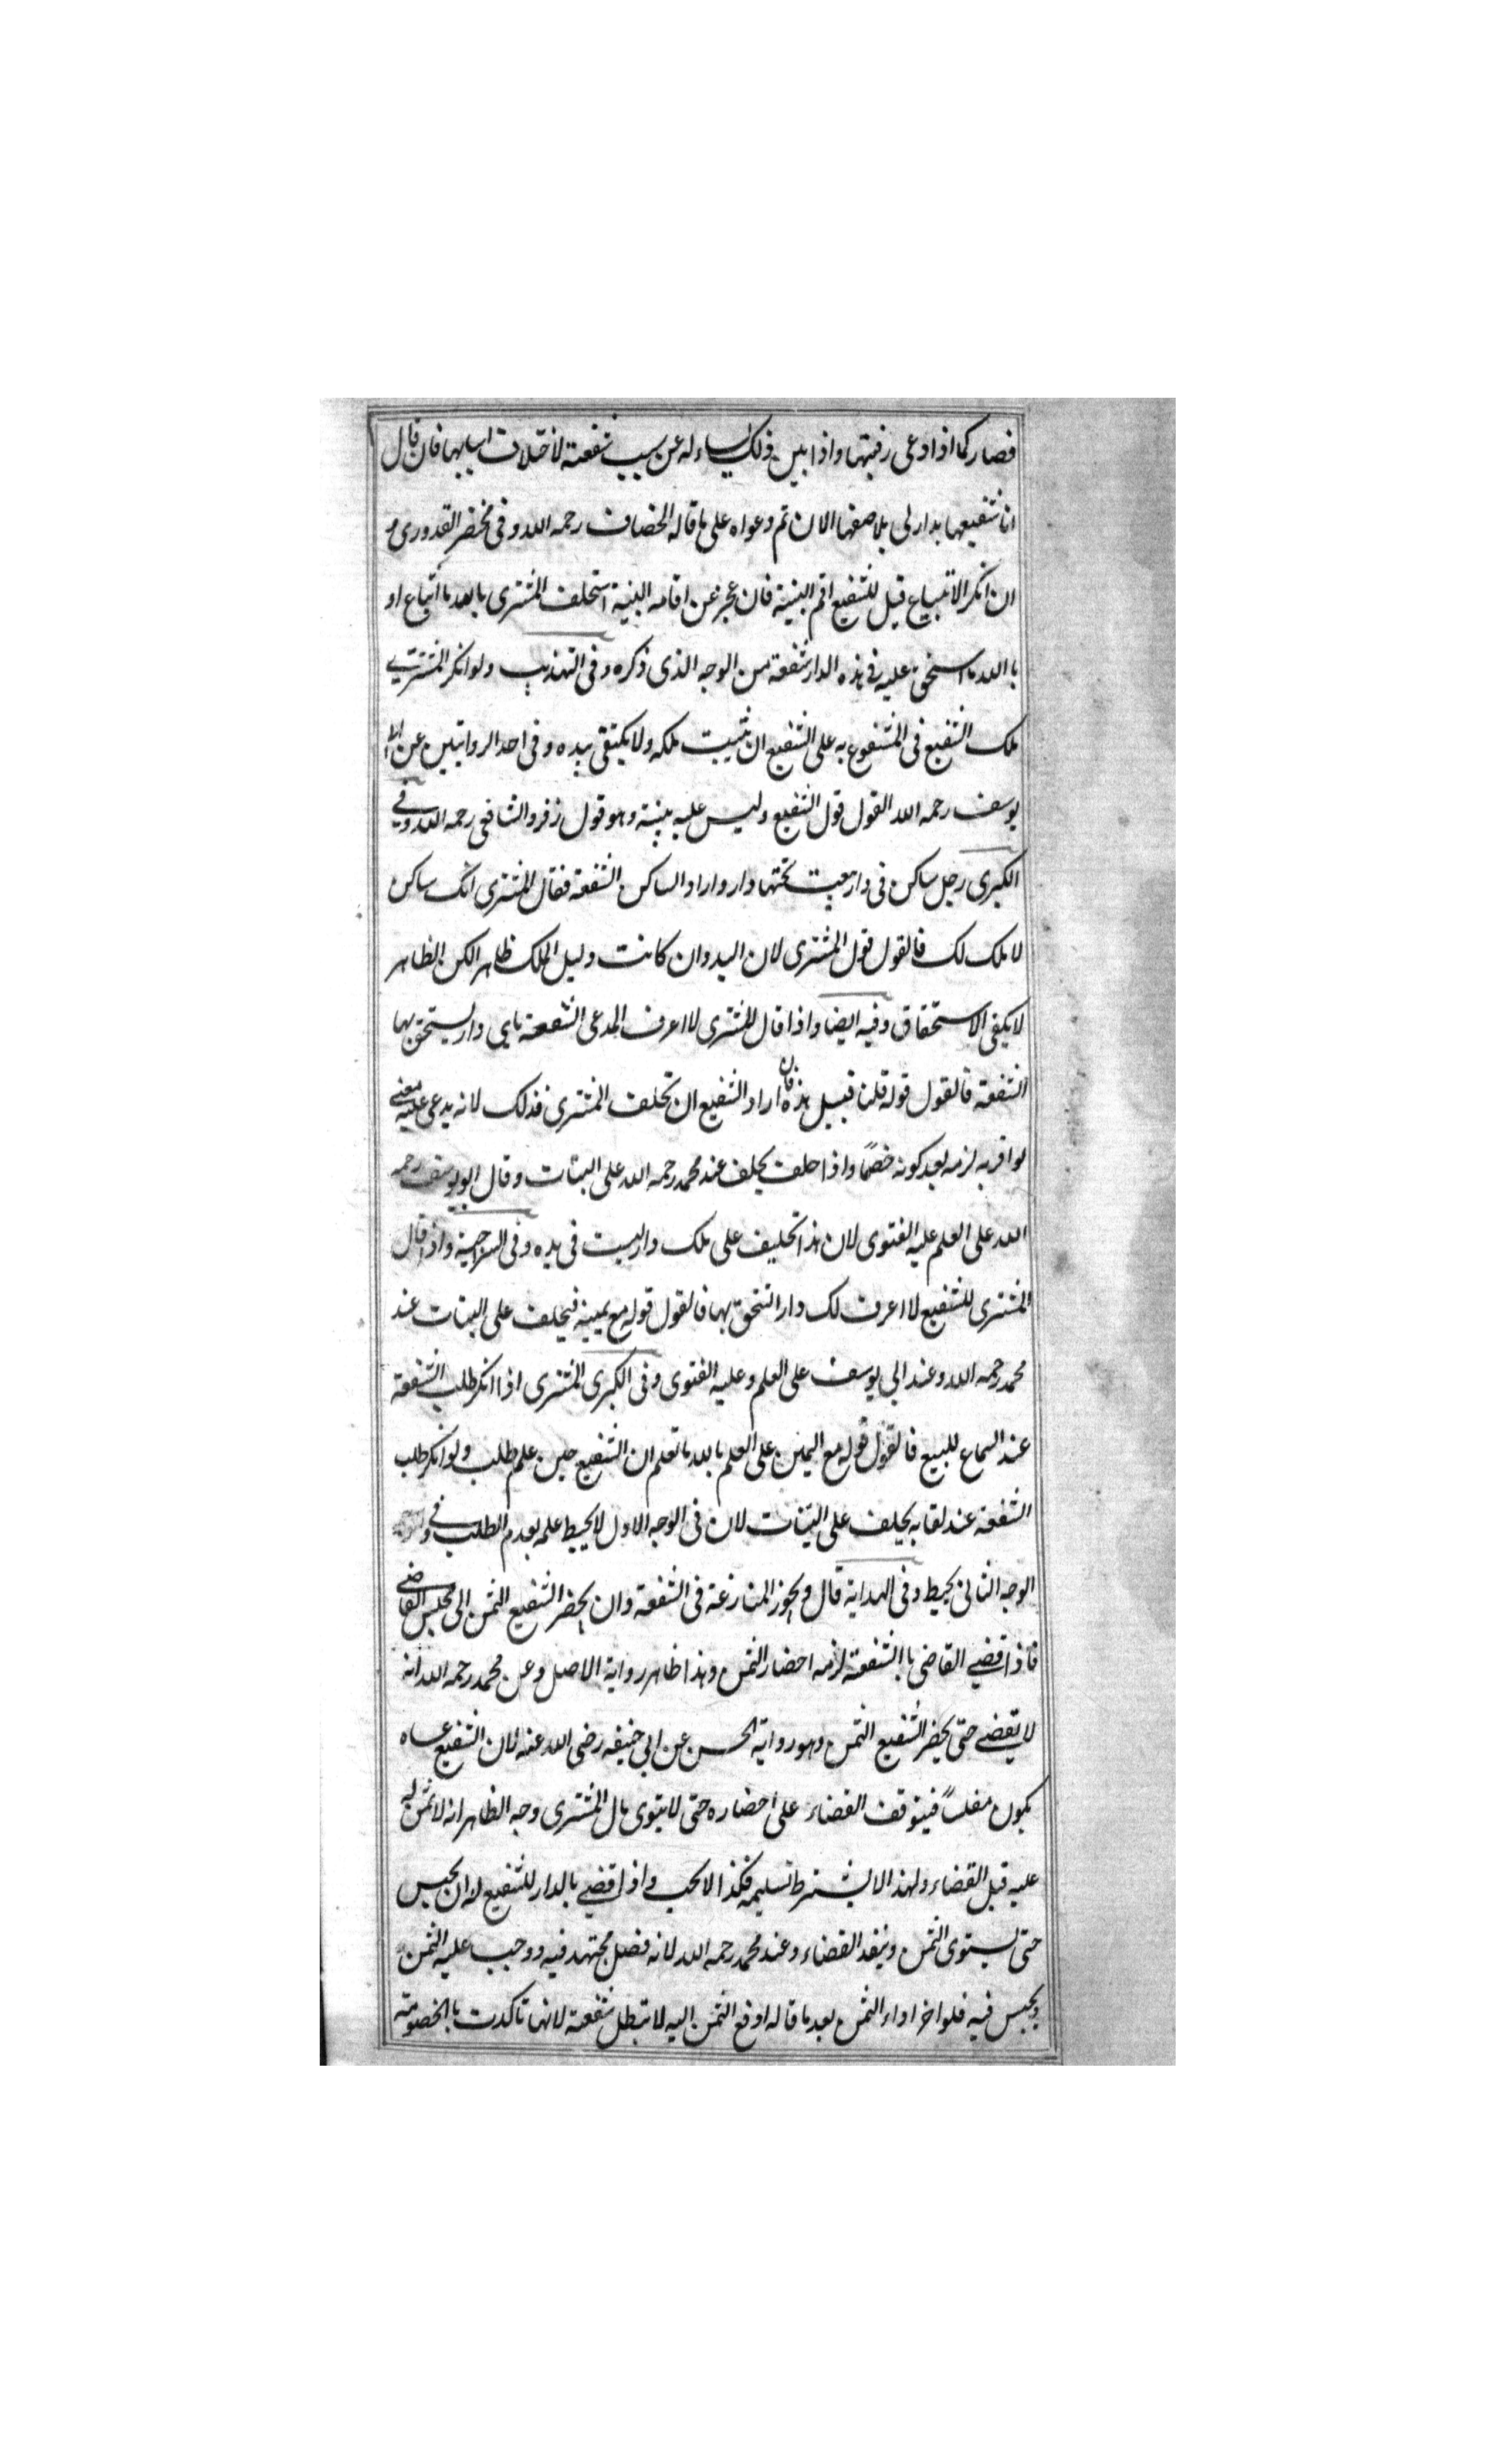 فصار كما اذا ادعى رقبتها واذا بين ذلك يساءله عن سبب شفعته لاختلاف اسبابها فان قال
انا شفيعها بدار لى يلاصقها الان تم دعواه على ما قاله الخصاف رحمه الله وفى مختصر القدورى و
ان انكر الابتياع قيل للشفيع اقم البينة فان عجز عن اقامه البينة استحلف المشترى بالله ما ابتاع او
با الله ما استحق عليه فى هذه الدار شفعة من الوجه الذى ذكره وفى التهذيب ولو انكر المشترى
ملك الشفيع فى المشفوع به على الشفيع ان يثبت ملكه ولا يكتفى بيده وفى احد الروايتين عن ابى
يوسف رحمه الله القول قول الشفيع وليس عليه بينة وهو قول زفر والشافعى رحمه الله وفى
الكبرى رجل ساكن فى دار بيعت بجنبها دار واراد الساكن الشفعة فقال المشترى انك ساكن
لا ملك لك فالقول قول المشترى لان اليد وان كانت دليل الملك ظاهرا لكن الظاهر
لا يكفى الاستحقاق وفيه ايضا واذا قال المشترى لا اعرف المدعى الشفعة باى دار يستحق بها
الشفعة فالقول قوله قلت قبيل هذه فان اراد الشفيع ان يحلف المشترى فذلك لانه يدعى عليه معنى
لو اقر به لزمه بعد كونه خصمًا واذا حلف يحلف عند محمد رحمه الله على البتات وقال ابو يوسف رحمه
الله على العلم عليه الفتوى لان هذا تحليف على ملك دار ليست فى يده وفى السراجية واذا قال
المشترى للشفيع لا اعرف لك دارا تستحق بها فالقول قوله مع يمينه فيحلف على البتات عند
محمد رحمه الله وعند ابى يوسف على العلم وعليه الفتوى وفى الكبرى المشترى اذا انكر طلب الشفعة
عند السماع للبيع فالقول قوله مع اليمين على العلم بالله ما تعلم ان الشفيع حين علم طلب ولو انكر طلب
الشفعة عند لقايه يحلف على البتات لان فى الوجه الاول لا يحيط علمه بعدم الطلب وفى
الوجه الثانى يحيط وفى الهداية قال ويجوز المنازعة فى الشفعة وان يحضر الشفيع الثمن الى مجلس القاضى
فاذا قضى القاضى باالشفعة لزمه احضار الثمن وهذا ظاهر رواية الاصل وعن محمد رحمه الله انه
لا يقضى حتى يحضر الشفيع الثمن وهو رواية الحسن عن ابى حنيفه رضى الله عنه لان الشفيع عساه
يكون مفلسًا فيتوقف القضاء على احضاره حتى لا يتوى مال المشترى وجه الظاهر انه لا ثمن له
عليه قبل القضاء ولهذا لا يشترط تسليمه فكذا لا يجب واذا قضى بالدار للشفيع له ان يحبس
حتى يستوى الثمن وينفد القضاء وعند محمد رحمه الله لانه فصل مجتهد فيه ووجب عليه الثمن
ويحبس فيه فلو اخر اداء الثمن بعد ما قال له ادفع الثمن اليه لا تبطل شفعته لانها تاكدت باالخصومة